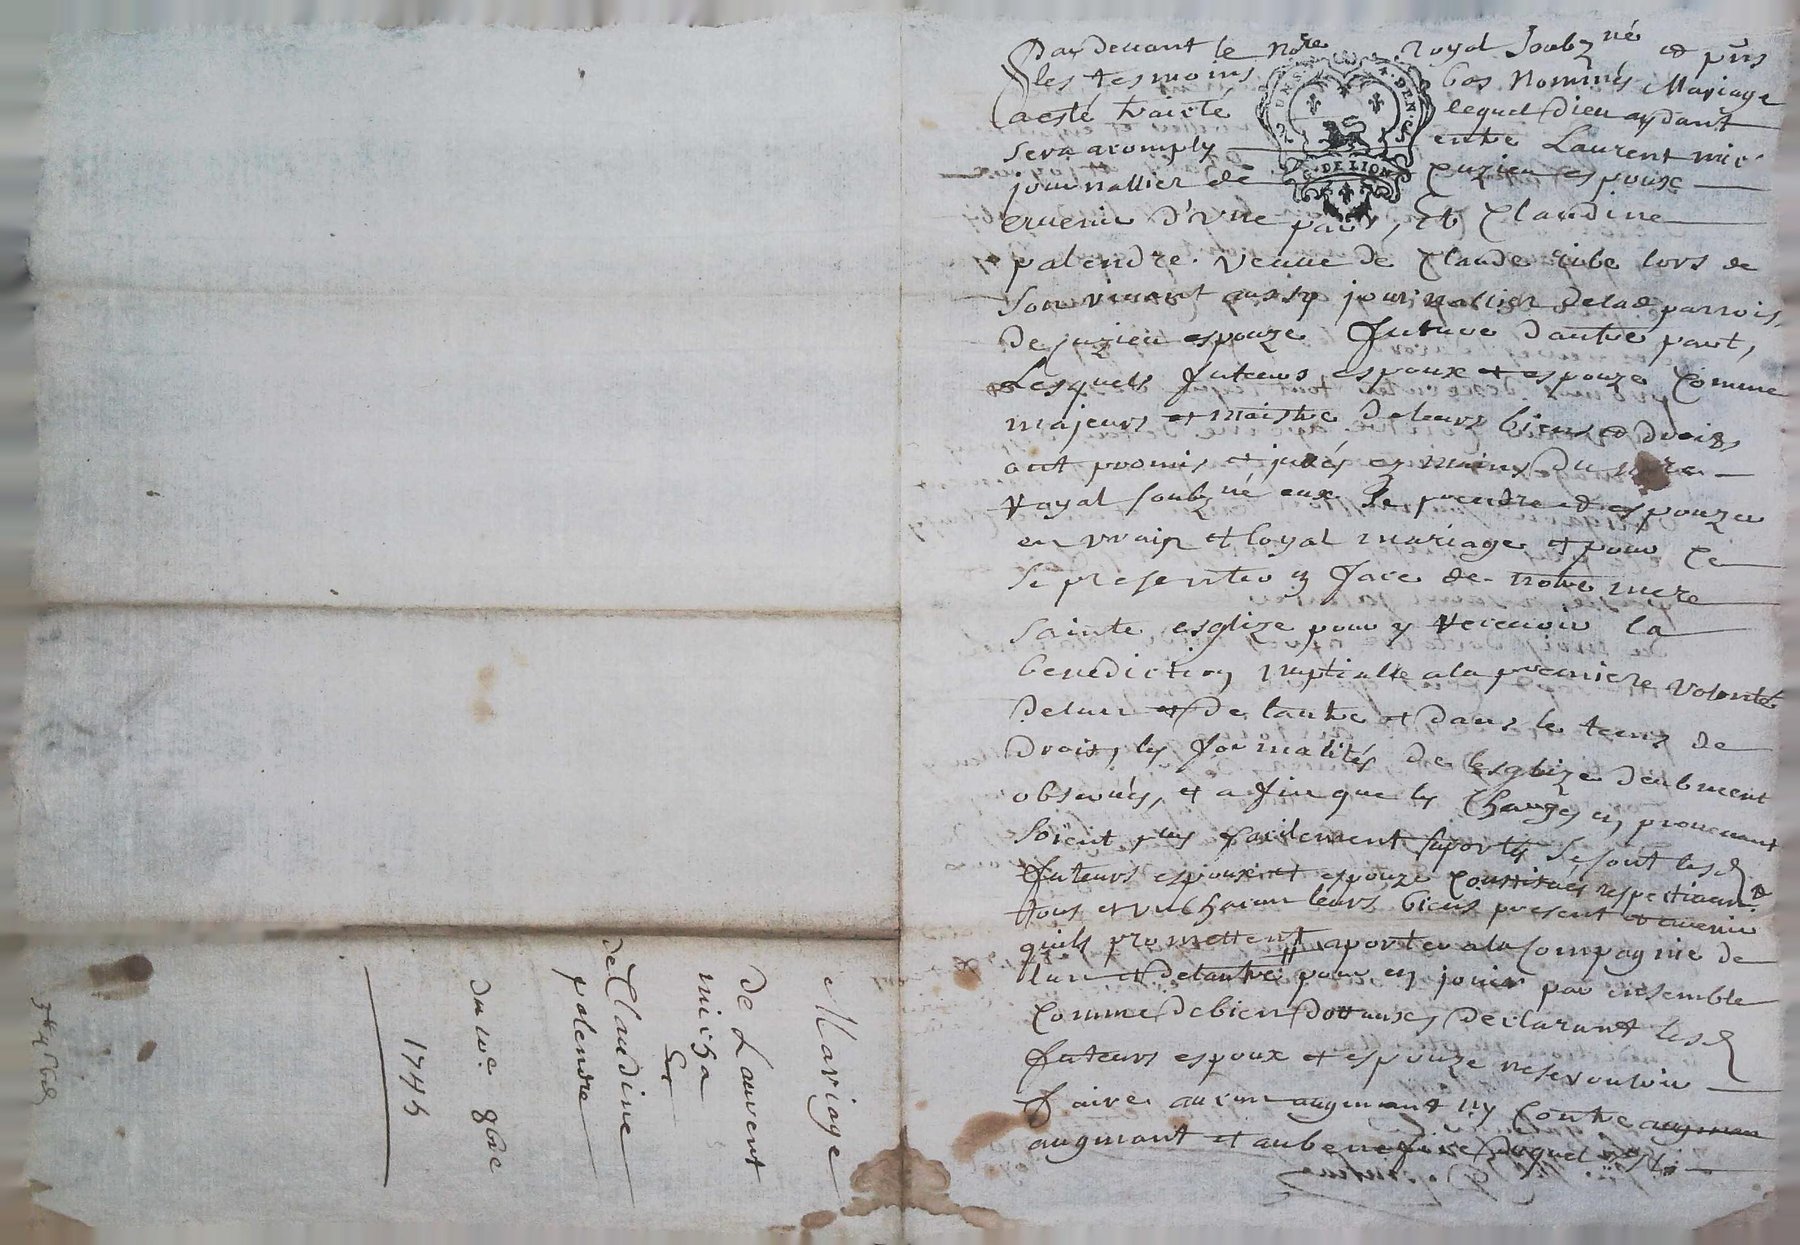 Mariage
de Laurent
micha
Et
de Claudine
palendre
du 10e 8bre
1745
Pardevant le nore royal soubzné et pnts
les tesmoins bas nommés Mariage
a esté traicté lequel dieu aydant
sera acomply entre Laurent mic
G. DE LION
journallier de Cuzieu espoux
avenir d'vne part, Et Claudine
palendre veuue de Claude lors de
son viuant aussy journallier de lad parrois
de Cuzieu espouze future dautre part,
Lesquels futeurs espoux et espouze Comme
majeurs et maistre de leurs biens et droits
ont promis et jurés es mains du nore
royal soubzné eux se prendre et espouzer
en vray et loyal mariage et pour Ce
se presenter en face de notre mere
sainte esglize pour y receuoir la
benediction nuptialle a la premiere volonté
de lun et de lautre et dans le tems de
droit, les formalités de lesglize deubment
obserués, et afin que les Charges en prouenant
soient plus facilement suportés se sont lesd
futeurs espoux et espouze Constitués respectiuemt
tous et vn chacun leurs biens present et avenir
quils promettent aporter a la Compagnie de
lun et de lautre pour en jouir par ensemble
Comme de bien dottaux, declarant lesd
futeurs espoux et espouze ne se vouloir
faire aucun augmant ny Contre
augmant et au benefice duquel